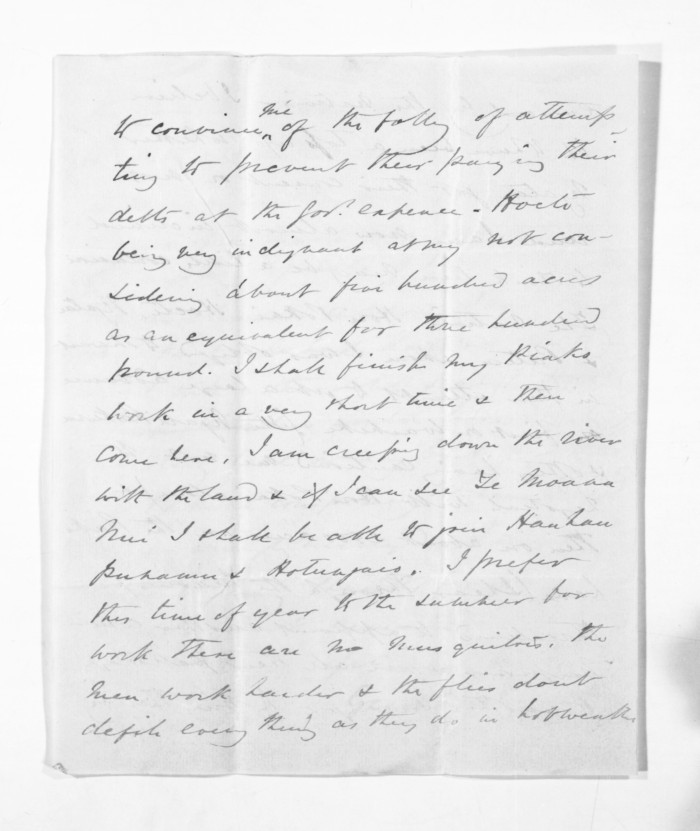 to convince me of the folly of attemp
ting to prevent their paying their
debts at the Gov.t expence - Hoete
being very indignant at my not con-
sidering about five hundred acres
as an equivalent for three hundred
pound. I shall finish my Piako
work in a very short time & then
come here. I am creeping down the river
with the land & if I can see Te Moana
Nui I shall be able to join Hauhau
& . I prefer
this time of year to the summer for
work there are no musquitos. the
men work harder & the flies dont
defile every thing as they do in hot weather